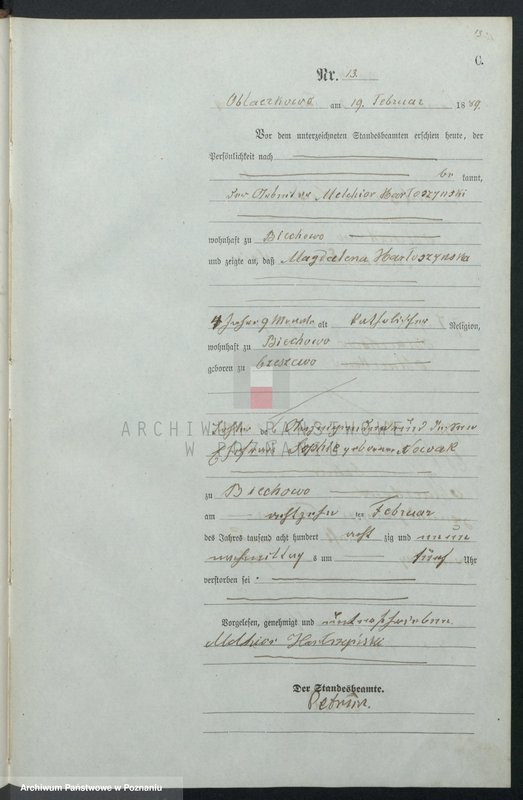 13.
C.
Nr. 13.
Oblaczkowo am 19. Februar 1889.
Vor dem unterzeichneten Standesbeamten erschien heute, der
Persönlichkeit nach
be kannt,
der Arbeiter Melchior Hartoszynski
wohnhaft zu Biechowo
und zeigte an, daß Magdalena Hartoszynska
4 Jahr 9 Monate alt katholischer Religion,
wohnhaft zu Biechowo
geboren zu
Tochter des Anzeigenden und dessen
Ehefrau Sophie geborene Nowak
ARCHIWUM PAŃSTWOWE
W POZNANIU
zu Biechowo
am achtzehn ten Februar
des Jahres tausend acht hundert acht zig und neun
nachmittag s um fünf Uhr
verstorben sei.
Vorgelesen, genehmigt und unterschrieben
Melchior
Der Standesbeamte.
Archiwum Państwowe w Poznaniu